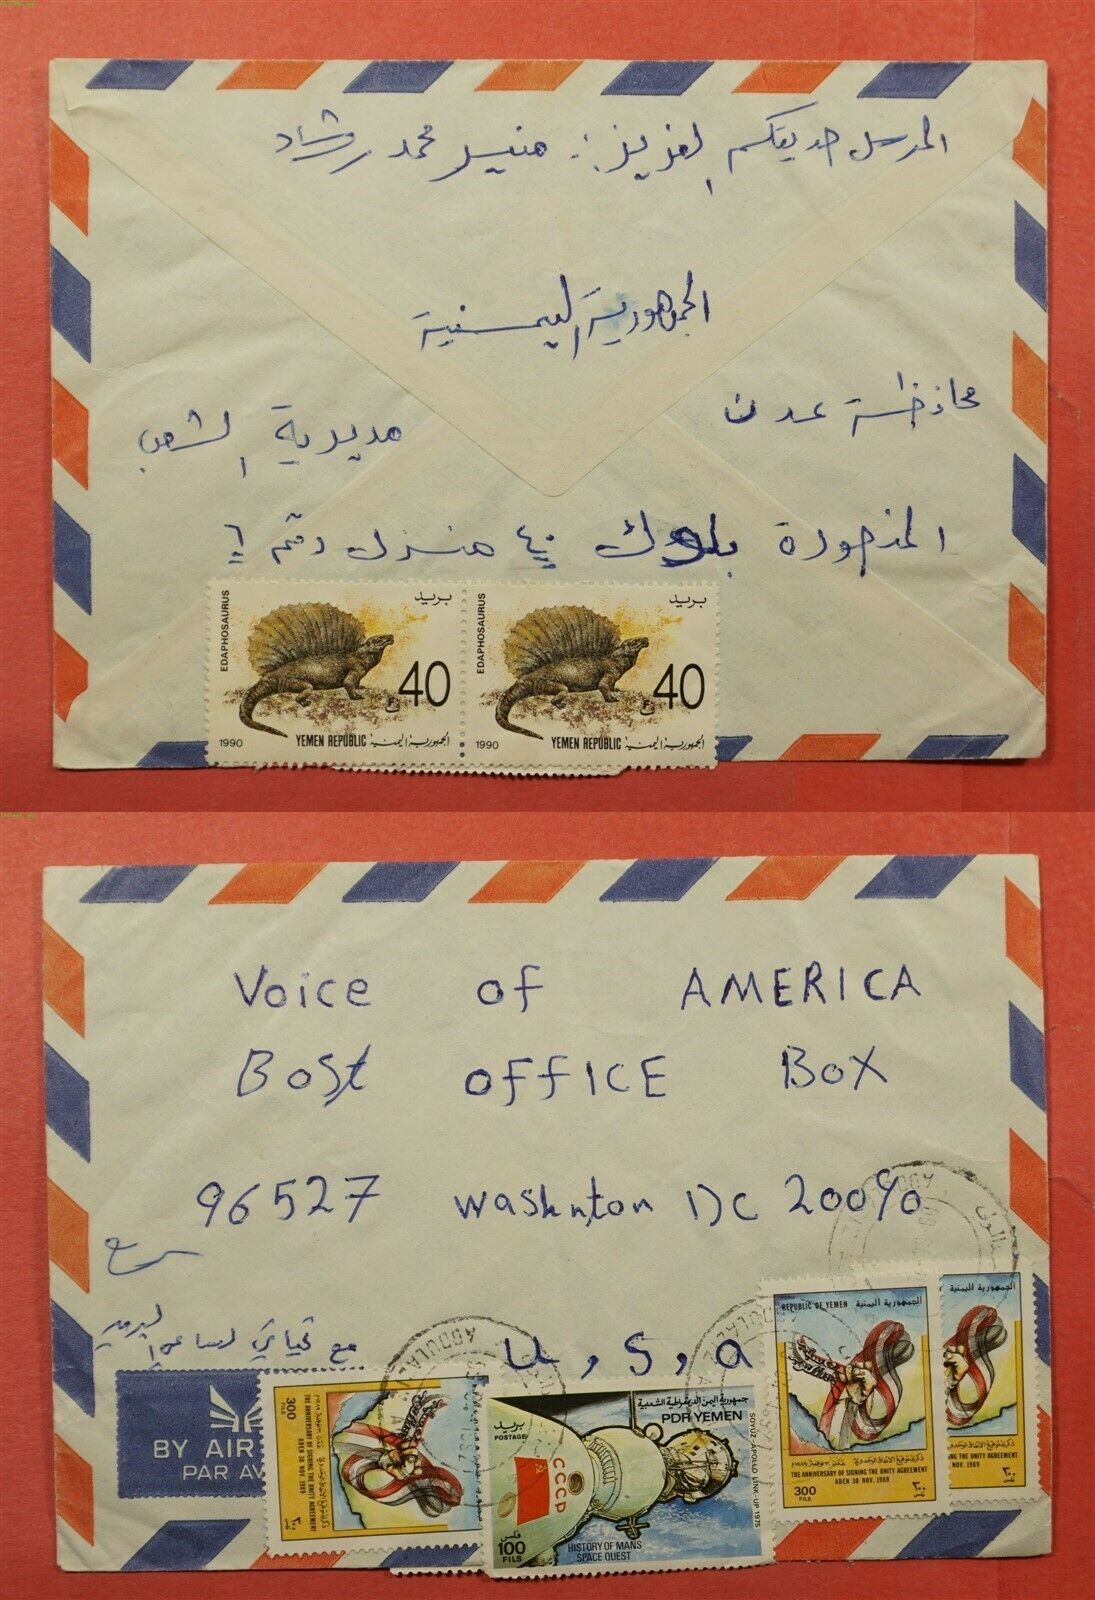 المرسل صديقكم العزيز : منير محمد رشاد
الجمهورية اليمنية
محافظة عدن
مديرية الشعب
المنصورة بلوك ٤٠ منزل رقم ٦
EDAPHOSAURUS
بريد
40
ف
1990
YEMEN REPUBLIC الجمهورية اليمنية
EDAPHOSAURUS
بريد
40
ف
1990
YEMEN REPUBLIC الجمهورية اليمنية
Voice of AMERICA
Bost OFFICE BOX
96527 Washnton DC 20090
U, S, a
مع تحياتي لساعي البريد
BY AIR
PAR AV
300
FILS
THE ANNIVERSARY OF SIGNING THE UNITY AGREEMENT
ADEN 30 NOV. 1989
٣٠٠
فلس
جمهورية اليمن الديمقراطية الشعبية
PDR YEMEN
بريد
POSTAGE
CCCP
SOYUZ-APOLLO LINK-UP 1975
فلس
100
FILS
HISTORY OF MANS
SPACE QUEST
REPUBLIC OF YEMEN الجمهورية اليمنية
THE ANNIVERSARY OF SIGNING THE UNITY AGREEMENT
ADEN 30 NOV. 1989
300
FILS
٣٠٠
فلس
الجمهورية اليمنية
NING THE UNITY AGREEMENT
NOV. 1989
٣٠٠
فلس